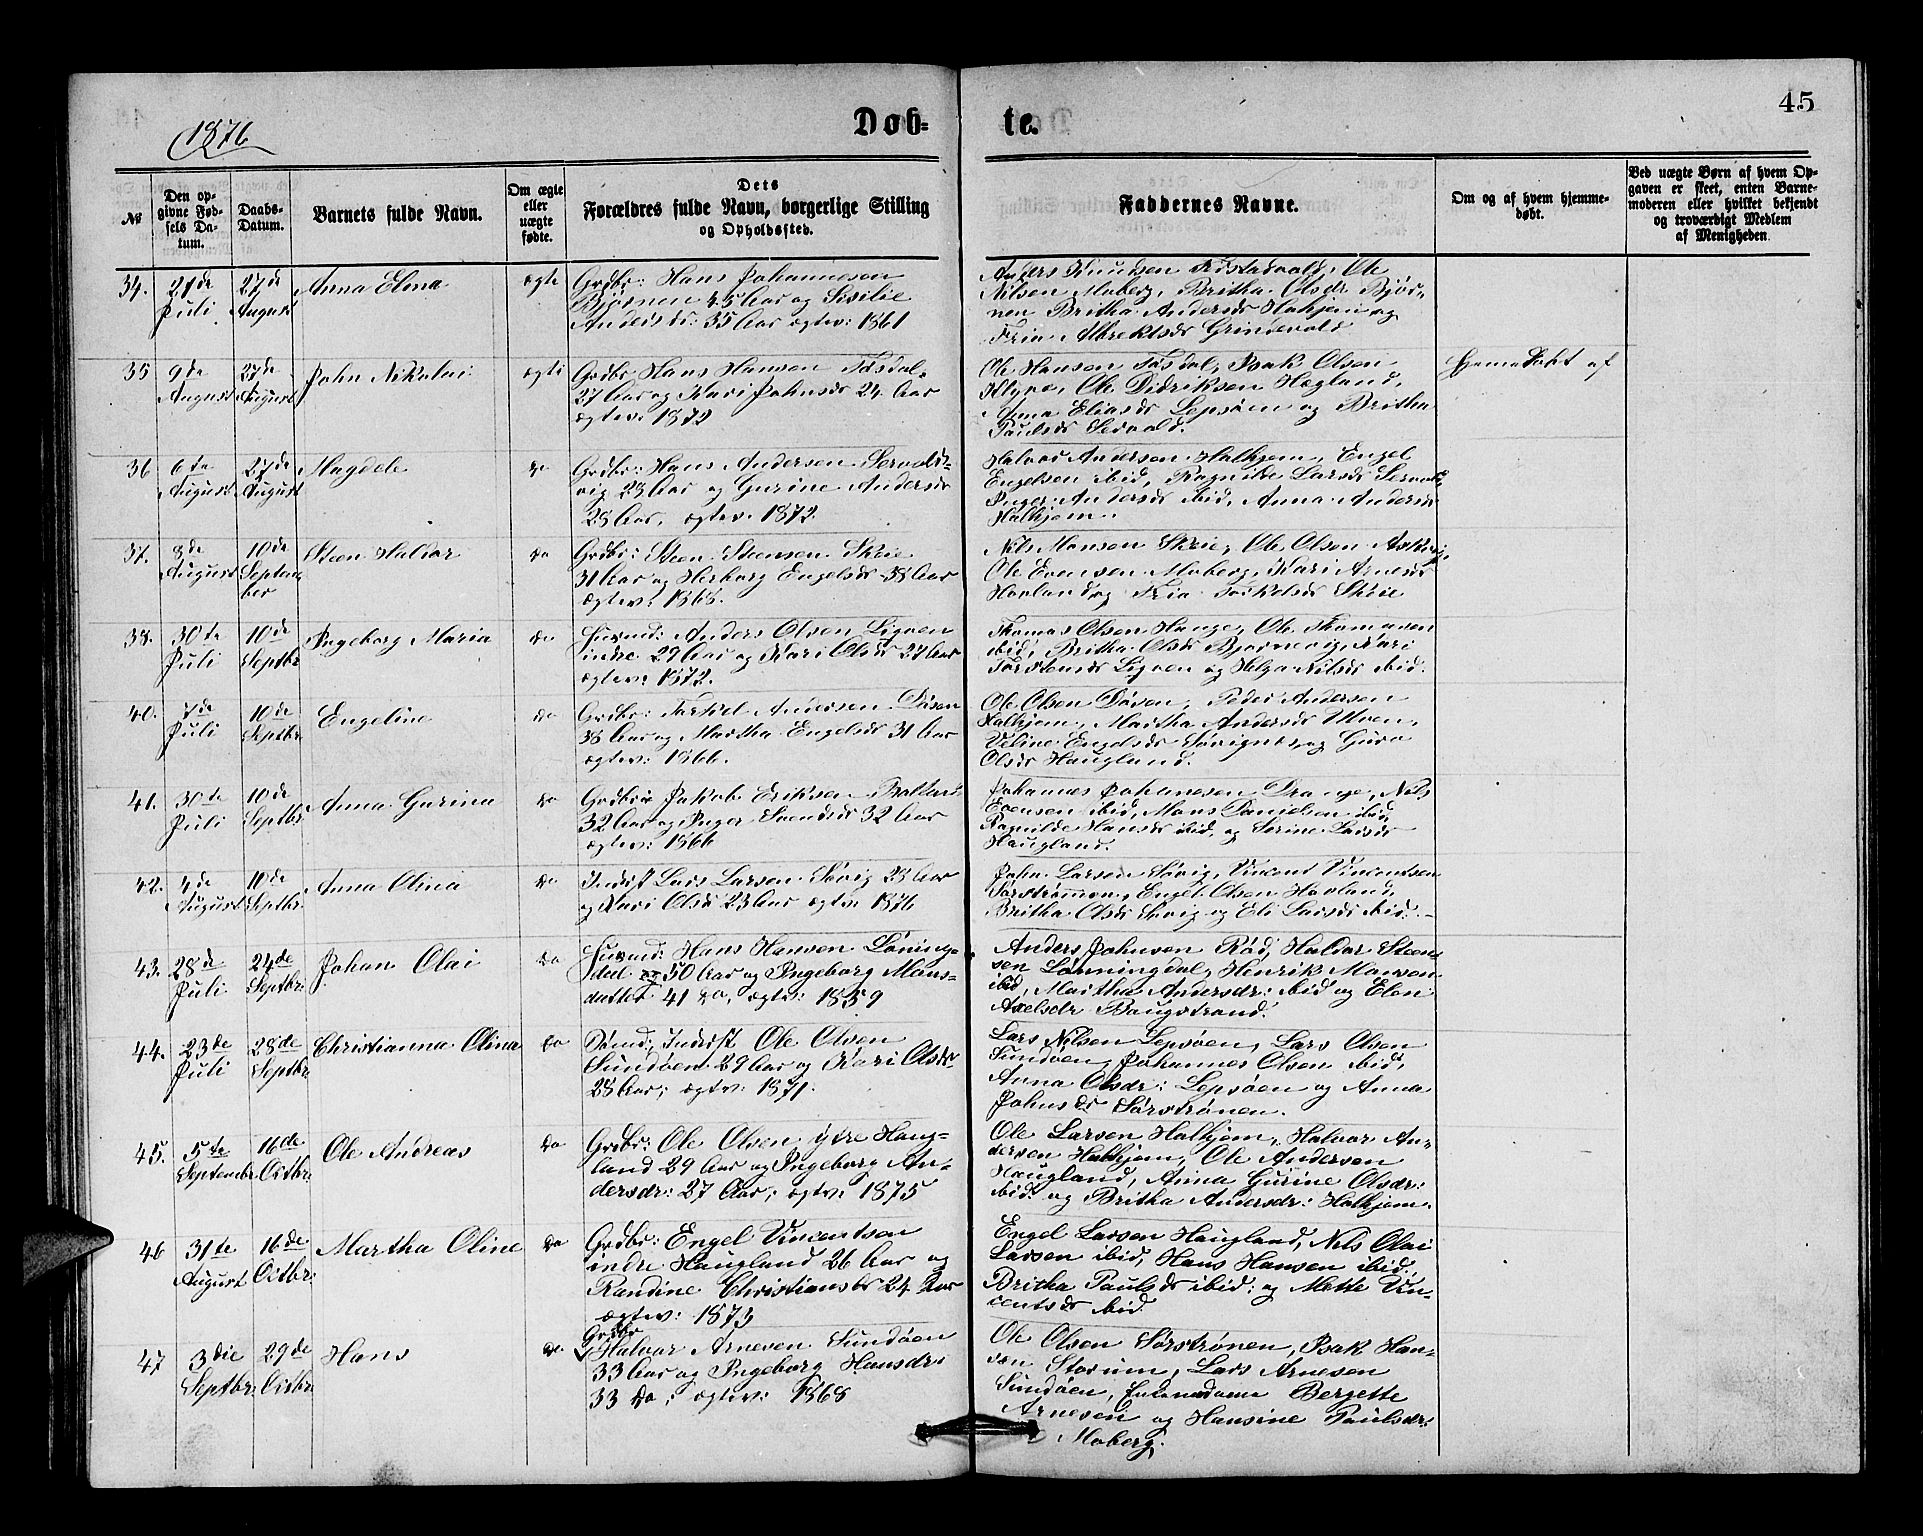 1876
Døb-
te.
45
№
Den op-
givne Fød-
sels Da-
tum.
Daabs-
Datum.
Barnets fulde Navn.
Om ægte
eller
uægte
fødte.
Dets
Forældres fulde Navn, borgerlige Stilling
og Opholdssted.
Faddernes Navne.
Om og af hvem hjemme-
døbt.
Ved uægte Børn af hvem Op-
gaven er skeet, enten Barne-
moderen eller hvilket bekjendt
og troværdigt Medlem
af Menigheden.
34.
21de
Juli
27de
August
Anna Elina
ægte
Grdbr: Hans Johannesen
Bjørnen 45 Aar og Sisilie
Andersdr: 35 Aar ægtev: 1861
Anders Knudsen Ole
Nilsen Moberg, Britha Olsdr Bjør-
nen Britha Andersdr Halhjem og
Albrektsdr Grindevold
35
9de
August
27de
August
John Nikolai
ægte
Grdbr Hans Hansen Tøsdal,
27 Aar og Kari Johnsdr 24 Aar
ægtev: 1872
Ole Hansen Tøsdal, Isak Olsen
Ole Didriksen Hegland,
Anna Eliasdr Lepsøen og Britha
Paulsdr
Hjemedøbt af
36
6te
August
27de
August
Magdele
do
Grdbr: Hans Andersen
vig 28 Aar og Gurine Andersdr
28 Aar, ægtev. 1872.
Halvor Andersen Halhjem, Engel
Engelsen ibid, Ragnilde Larsdr
Inger Andersdr ibid, Anna Andersdr
Halhjem.
37.
8de
August
10de
Septem-
ber
Steen Haldor
do
Grdbr: Steen Steensen Skeie
31 Aar og Herborg Engelsdr 38 Aar
ægtev: 1868.
Nils Monsen Skeie, Ole Olsen Askvig,
Ole Evensen Moberg, Kari Arnesdr
Hovland og Torkelsdr Skeie
38.
30te
Juli
10de
Septbr.
Ingeborg Maria
do
Huusmd: Anders Olsen Ligven
indre 29 Aar og Kari Olsdr 27 Aar
ægtev: 1872.
Thomas Olsen Hauge, Ole Thomasen
ibid, Britha Olsdr Bjørnevig, Kari
Torstensdr Ligven og Helga Nilsdr ibid.
40.
7de
Juli
10de
Septbr.
Engeline
do
Grdbr: Torkel Andersen Døsen
38 Aar og Martha Engelsdr 31 Aar
ægtev: 1866.
Ole Olsen Døsen, Peder Andersen
Halhjem, Martha Andersdr Ulven,
Veline Engelsdr og Guro
Olsdr Haugland.
41.
30te
Juli
10de
Septbr.
Anna Gurina
do
Grdbr: Jakob Eriksen
32 Aar og Inger Svendsdr 32 Aar
ægtev: 1866
Johannes Johannesen Drange, Nils
Evensen ibid, Mons Danielsen ibid,
Ragnilde Hansdr ibid, og Serine Larsdr
Haugland.
42.
4de
August
10de
Septbr.
Anna Olina
do
Inderst Lars Larsen Søvig 23 Aar
og Kari Olsdr 23 Aar ægtev 1876
John Larsen Søvig, Vincent Vincentsen
Sørstrømmen, Engel Olsen Hovland,
Britha Olsdr Søvig og Eli Larsdr ibid.
43.
28de
Juli
24de
Septbr.
Johan Olai
do
Husmd: Hans Hansen Lønings-
dal og 50 Aar og Ingeborg Mons-
datter 41 do, ægtev: 1859
Anders Johnsen Rød, Haldor Steen-
sen Lønningdal, Henrik Monsen
ibid, Martha Andersdr: ibid og Elen
Axelsdr Baugstrand.
44.
23de
Juli
28de
Septbr.
Christianna Olina
do
Inderst Ole Olsen
Sundøen 29 Aar og Kari Olsdr
28 Aar; ægtev: 1871.
Lars Nilsen Lepsøen, Lars Olsen
Sundøen, Johannes Olsen ibid,
Anna Olsdr: Lepsøen og Anna
Johnsdr Sørstrønen.
45.
5te
Septembr
16de
Octbr.
Ole Andreas
do
Grdbr: Ole Olsen ytre Haug-
land 29 Aar og Ingeborg An-
dersdr: 27 Aar; ægtev: 1875
Ole Larsen Halhjem, Halvor An-
dersen Halhjem, Ole Andersen
Haugland, Anna Gurine Olsdr:
ibid og Britha Andersdr: Halhjem.
46
31te
August
16de
Octbr:
Martha Oline
do
Grdbr: Engel Vincentsen
indre Haugland 26 Aar og
Randine Christiansdr 24 Aar
ægtev: 1873
Engel Larsen Haugland, Nils Olai
Larsen ibid, Hans Hansen ibid,
Britha Paulsdr ibid: og Mette Vin-
centsdr ibid
47
3die
Septbr:
29de
Octbr.
Hans
do
Grdbr
Halvor Arnesen Sundøen
33 Aar og Ingeborg Hansdr:
33 do; ægtev: 1868
Ole Olsen Sørstrønen, Isak Han-
sen Storum, Lars Arnesen
Sundøen, Bergette
Arnesen og Hansine Paulsdr:
Moberg.